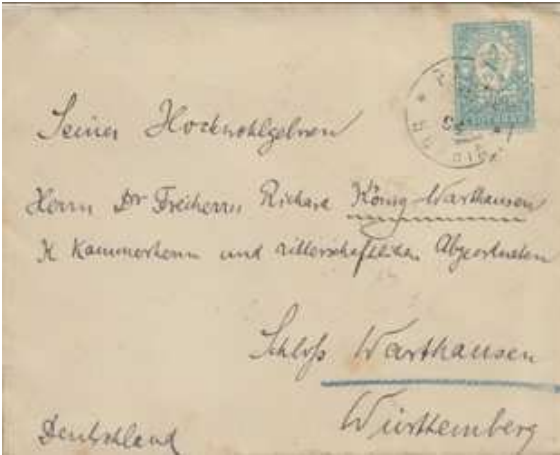 Seiner Hochwohlgeboren
Herrn Dr Freiherrn Richard König-Warthausen
K Kammerherrn und ritterschaftlichen Abgeordneten
Schloß Warthausen
Württemberg
Deutschland